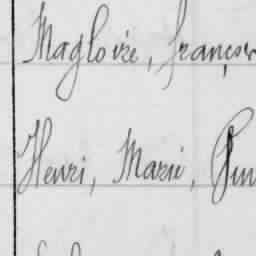 Magloire, françois
Henri, Marie,